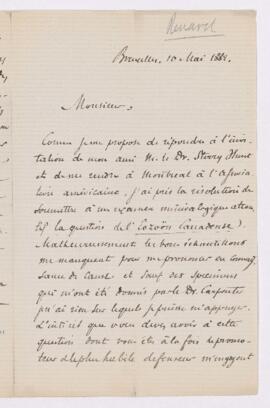 Renard
Bruxelles, 10 Mai 1882.
Monsieur,
Comme je me propose de répondre à l'invi-
tation de mon ami M. le Dr. Sterry Hunt
et de me rendre à Montreal à l'Associa-
tion américaine, j'ai pris la résolution de
soumettre à un examen minéralogique atten-
tif la question de l'Eozöon Canadense.
Malheureusement les bons échantillons
me manquent pour me prononcer en connais-
sance de cause et sauf des specimens
qui m'ont été donnés par le Dr. Carpenter
je n'ai rien sur lequel je puisse m'appuyer.
L'intérêt que vous devez avoir à cette
question dont vous êtes à la fois le promo-
teur et le plus habile défenseur m'engagent